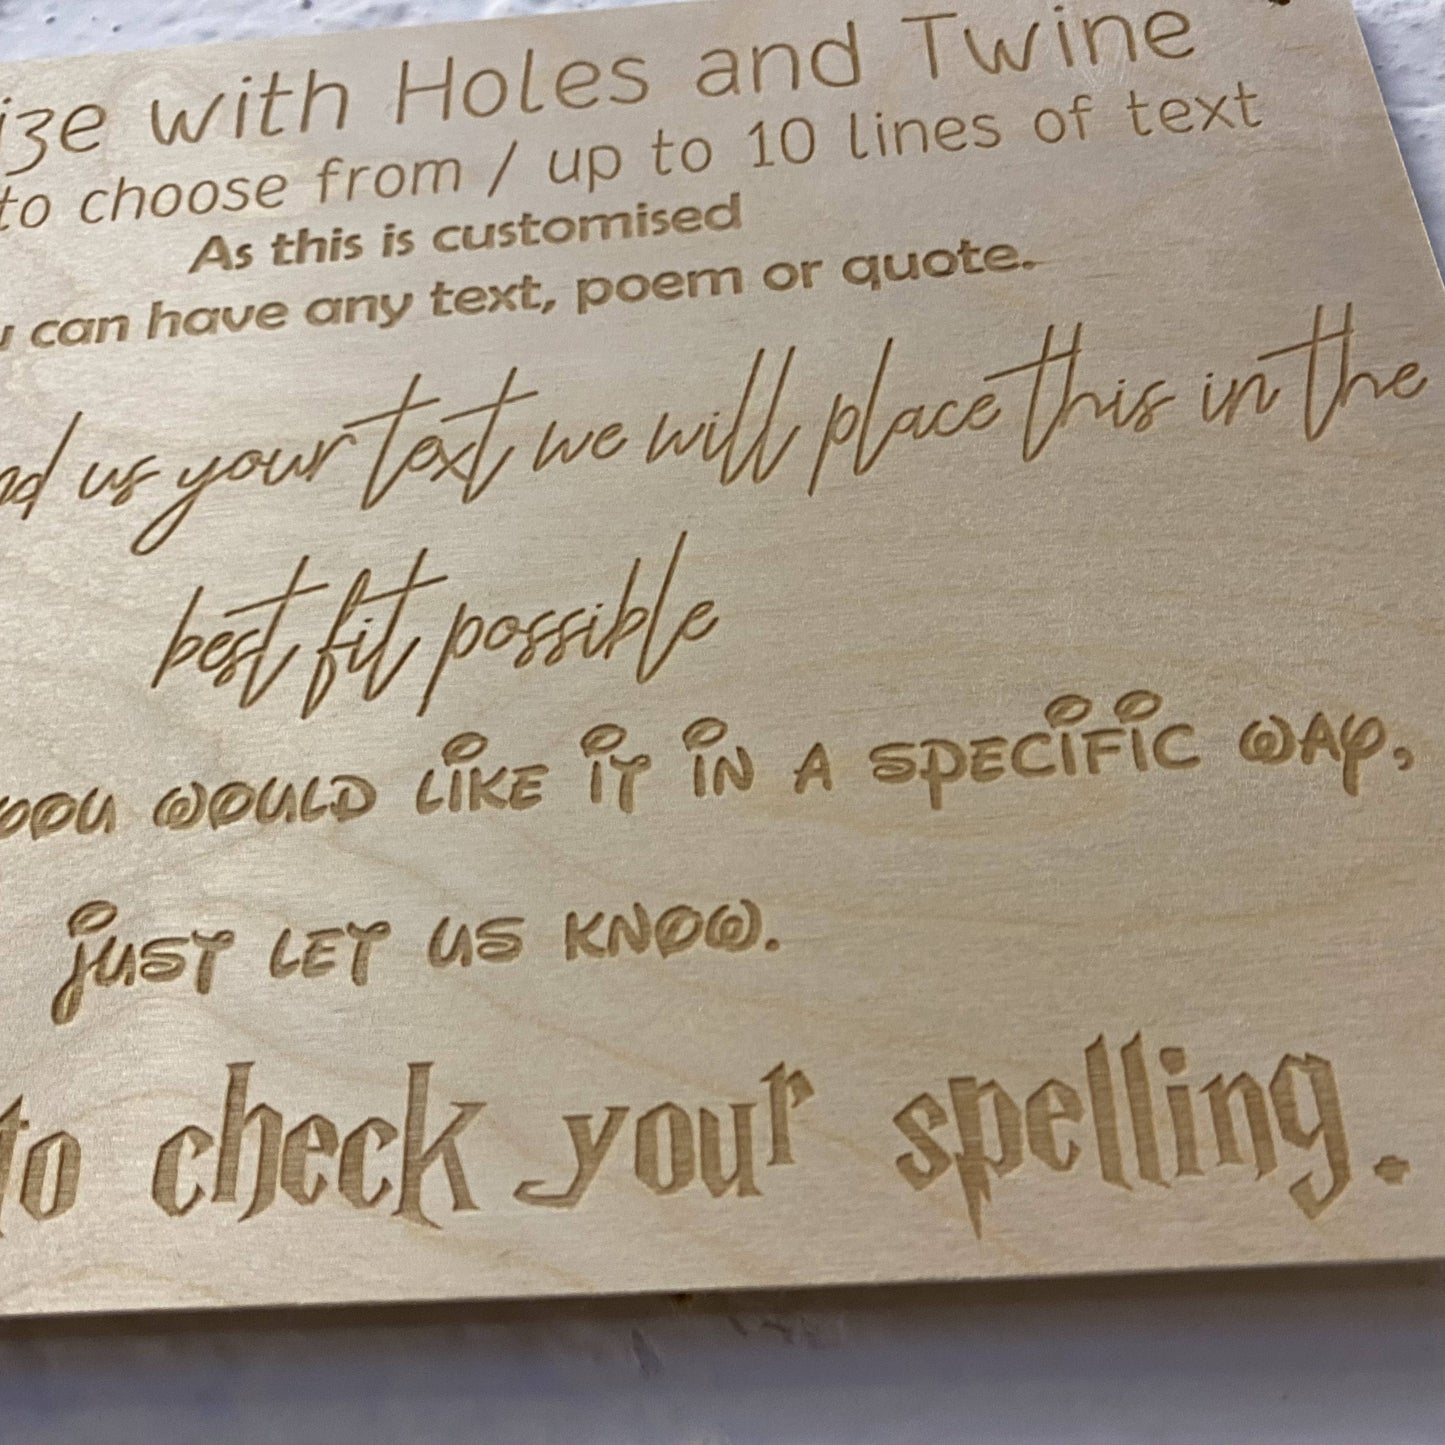 with Holes and Twine
to choose from / up to 10 lines of text
As this is customised
can have any text, poem or quote.
us your text we will place this in the
best fit possible
you would like it in a specific way,
just let us know.
to check your spelling.